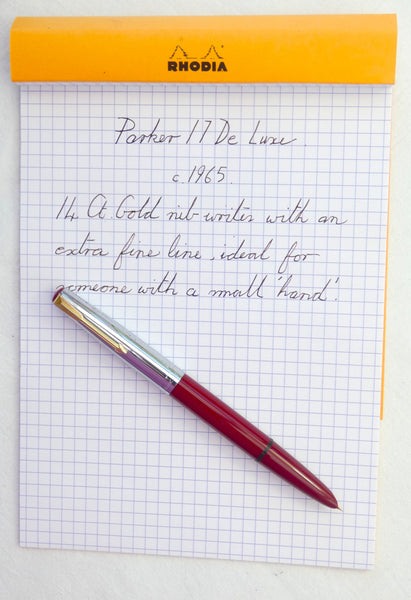 RHODIA
Parker 17 De Luxe.
c.1965.
14 Ct Gold nib writes with an
extra fine line, ideal for
someone with a small 'hand'.